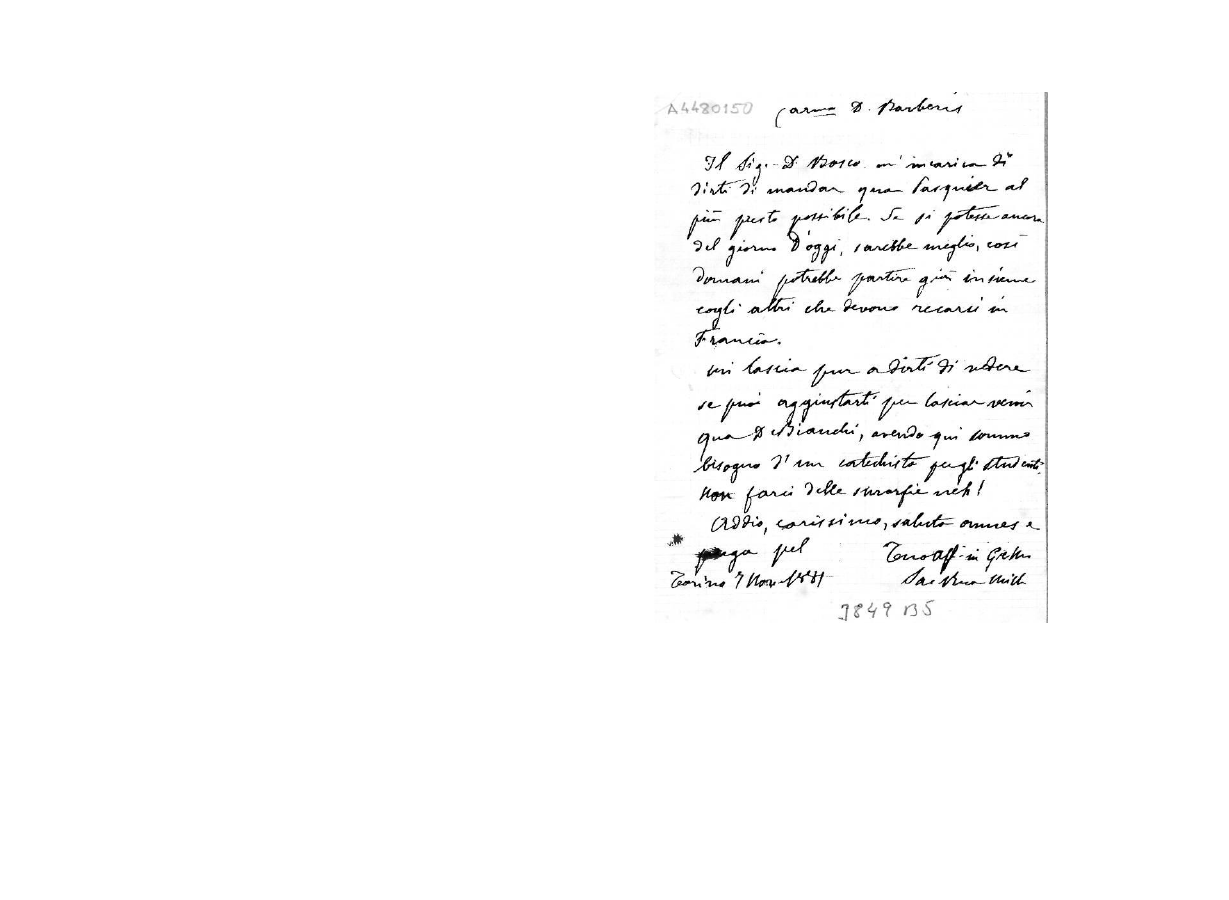 A4480150
Carmo D. Barberis
Il Sig. D. Bosco m'incarica di
dirti di mandar qua Pasquier al
più presto possibile. Se si potesse ancora
del giorno d'oggi, sarebbe meglio, così
domani potrebbe partire già insieme
cogli altri che devono recarsi in
Francia.
Mi lascia pur a dirti di vedere
se puoi aggiustarti per lasciar venir
qua D. Bianchi, avendo qui sommo
bisogno d'un catechista per gli studenti.
Non farci delle smorfie neh!
Addio, carissimo, saluta omnes e
prega pel
Tuo aff. in G.
Torino 7 Nov. 1881
Sac. Rua Mich
3849 B5